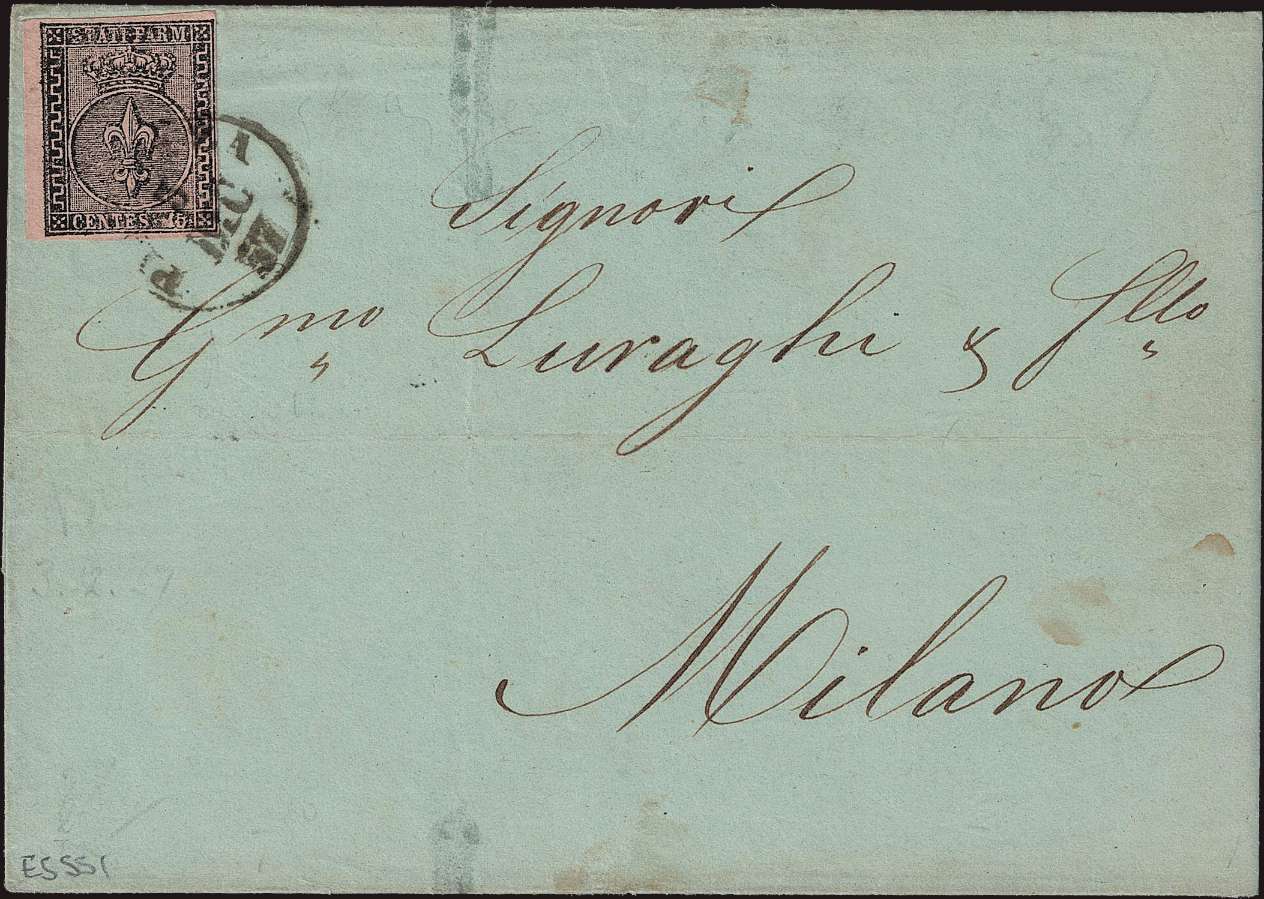 STATI PARM
CENTES. 15
Signori
Gmo Luraghi & fllo
Milano
E5551